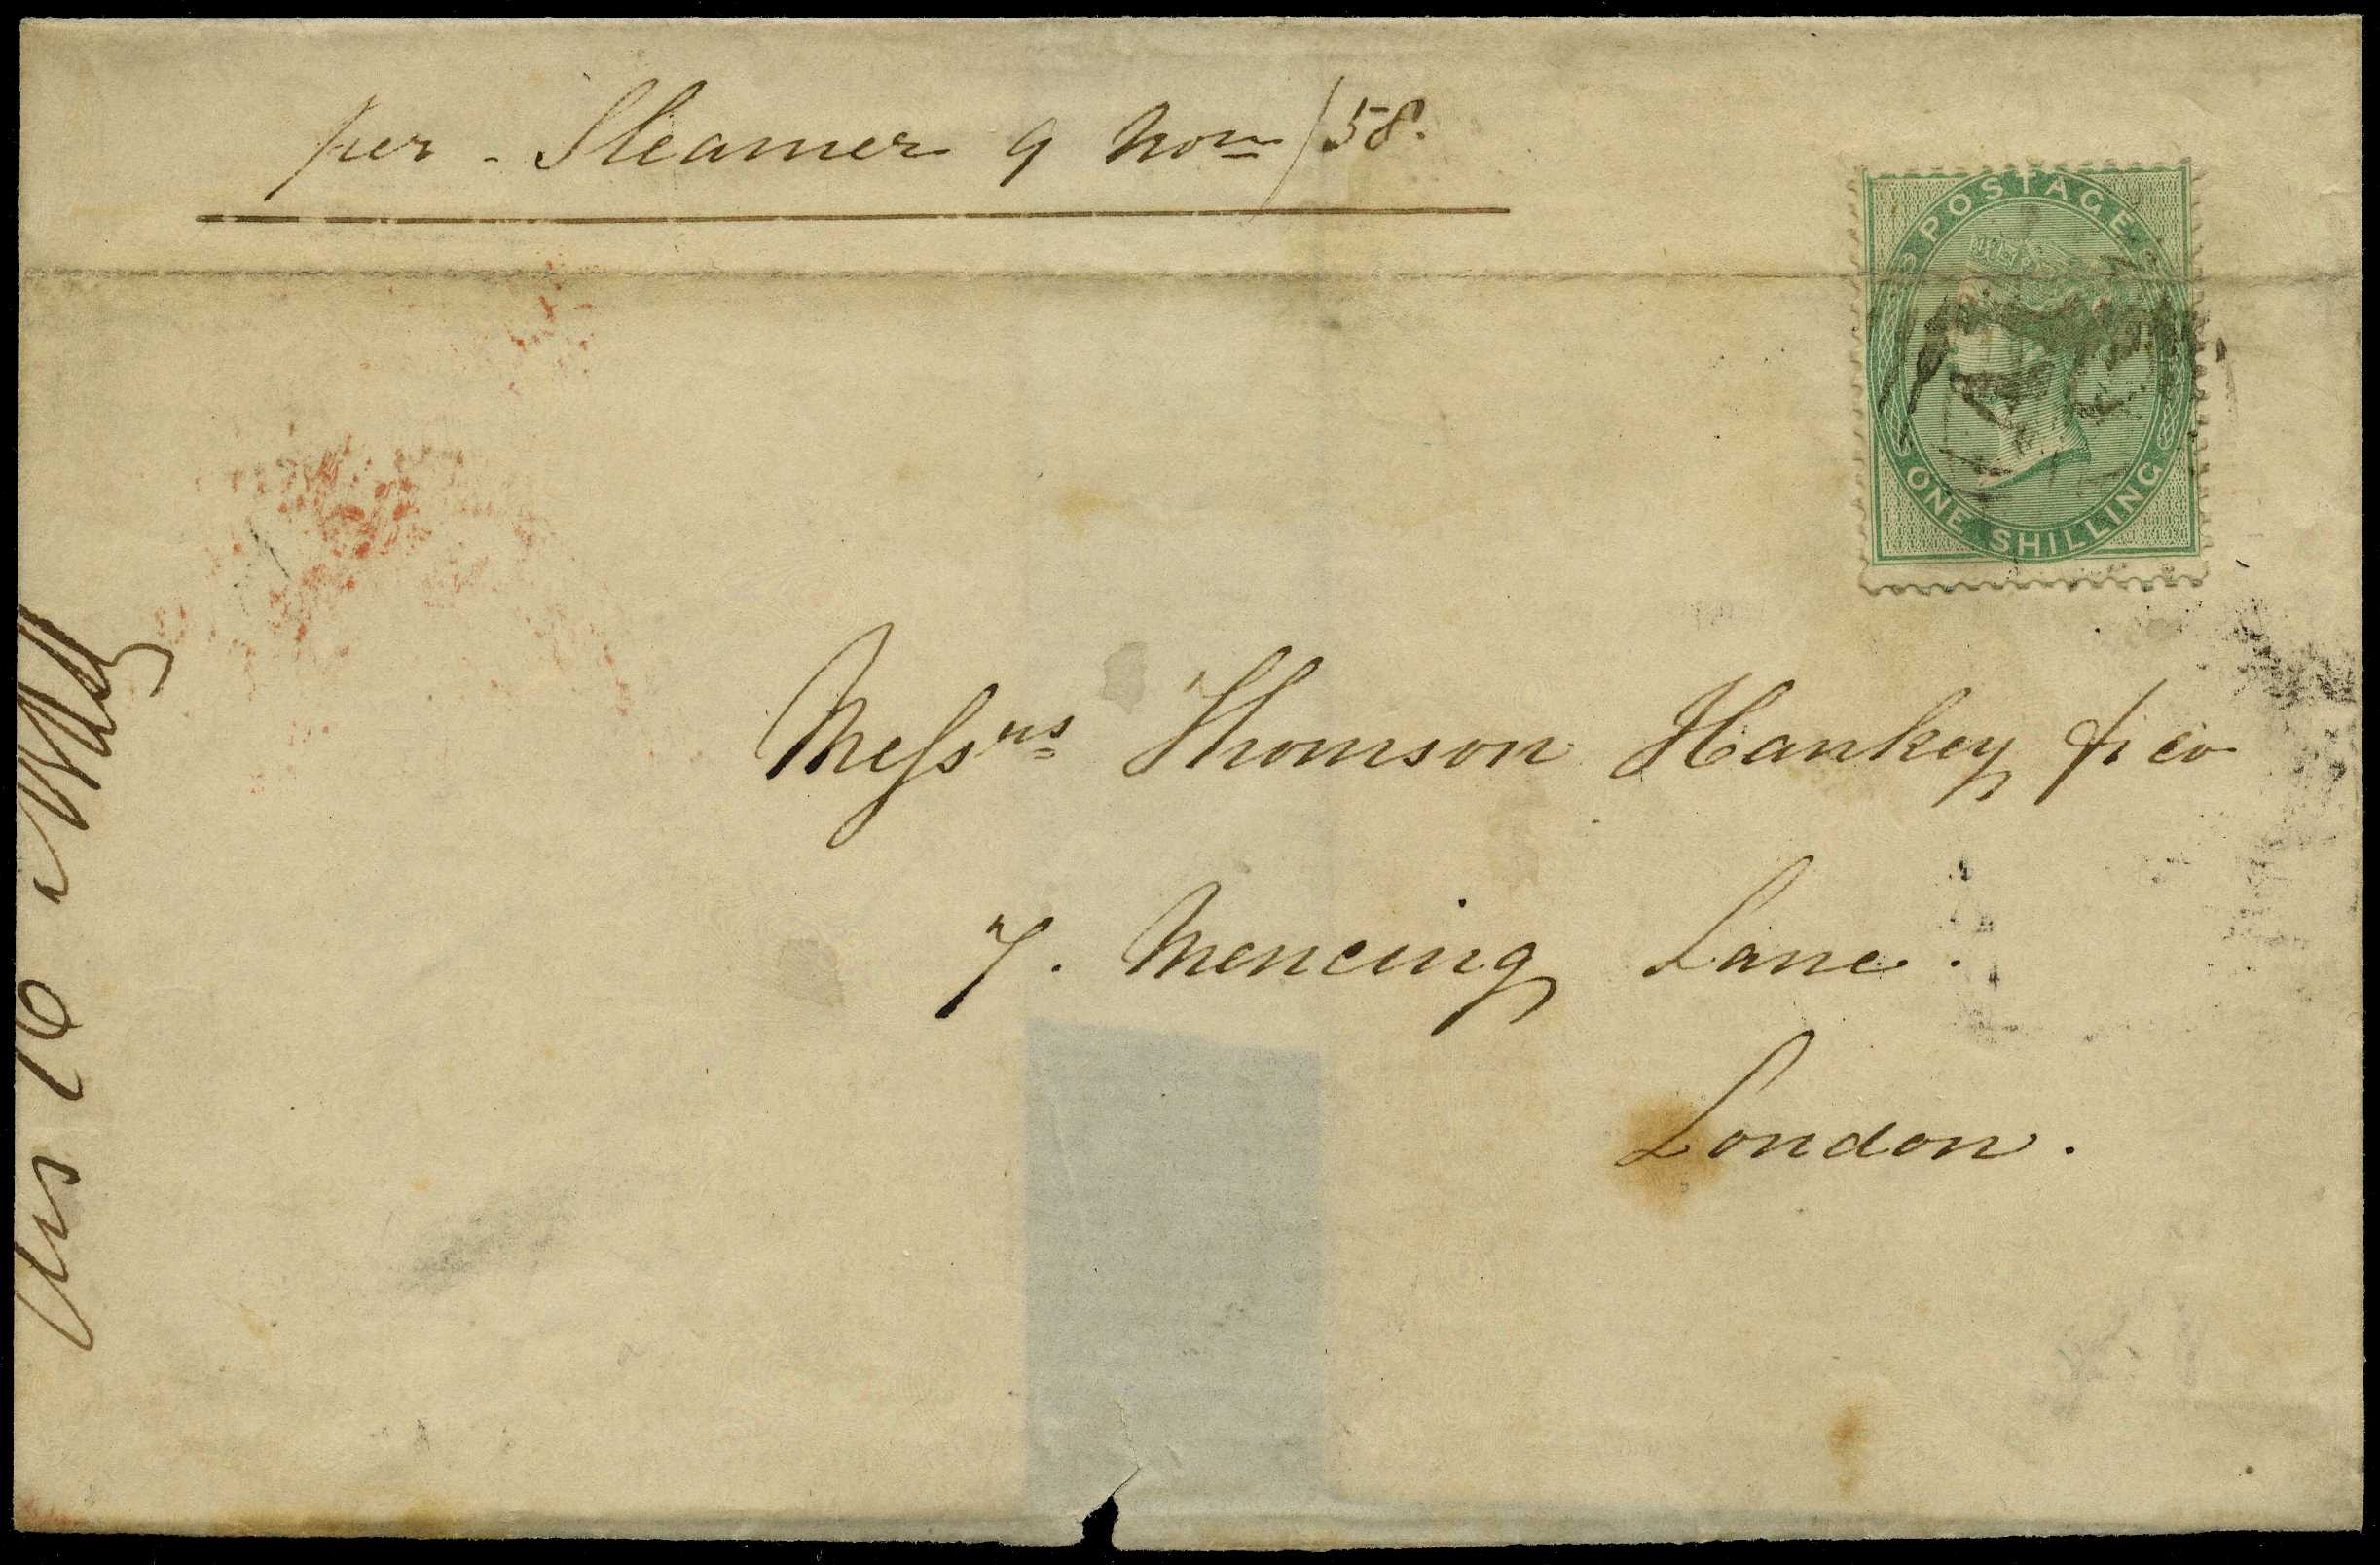 per - Steamer 9 Novr /58.
POSTAGE
ONE SHILLING
Messrs Thomson Hankey & Co
7. Mencing Lane.
London.